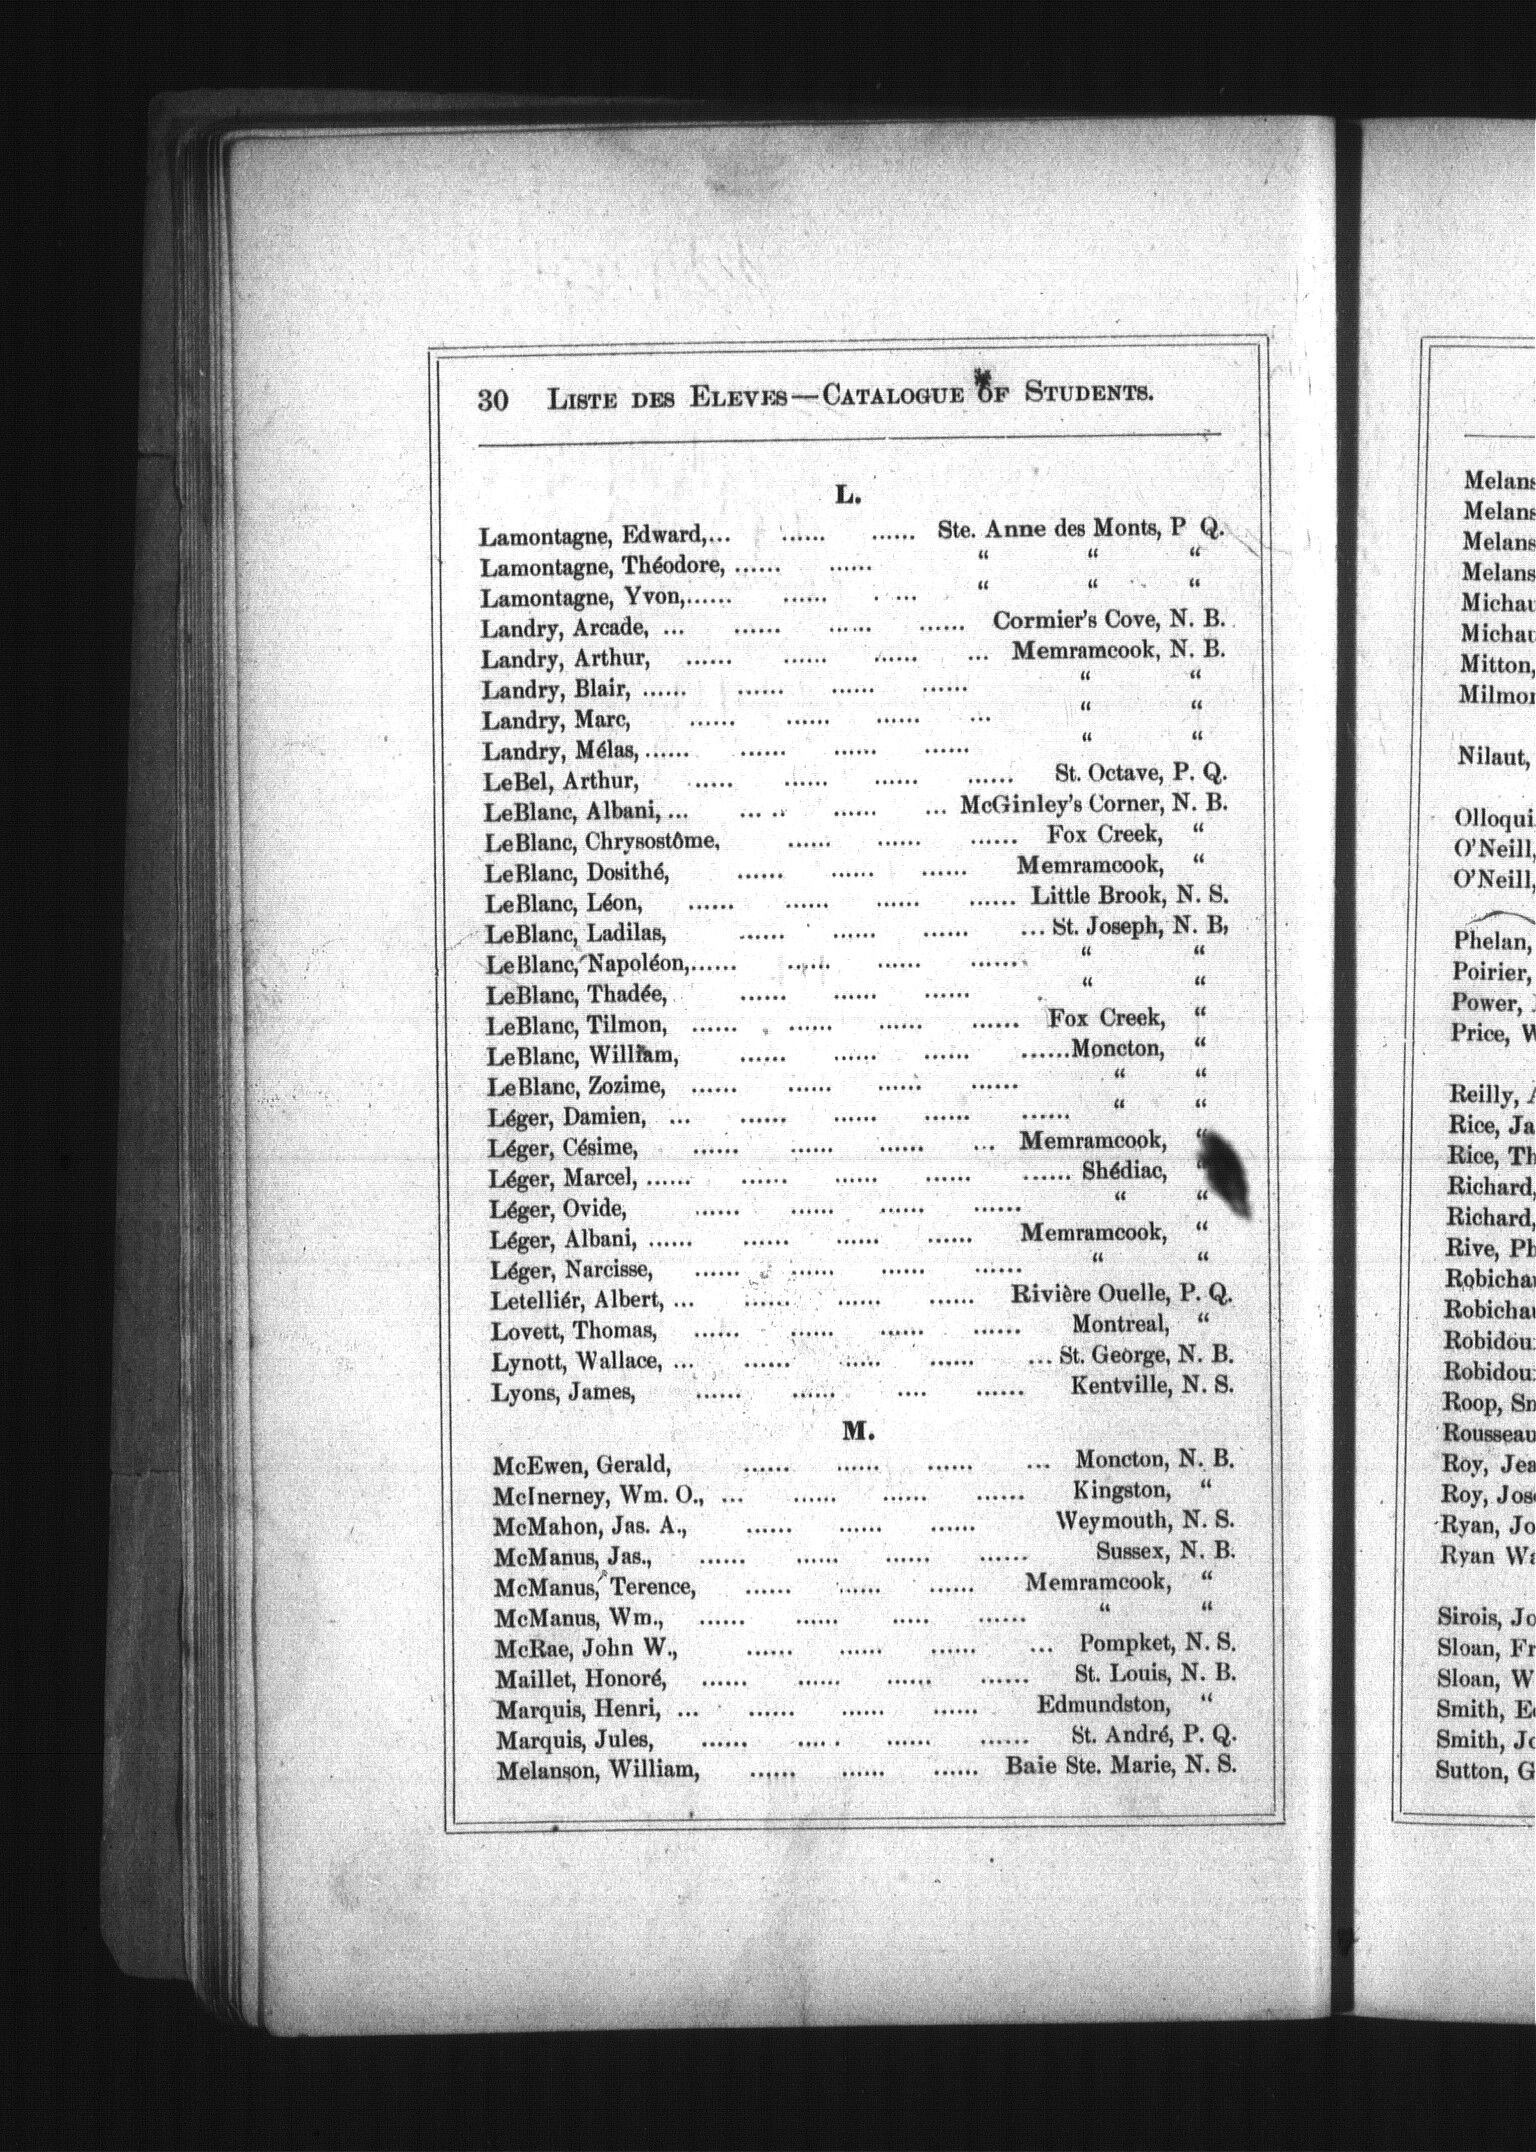 30 LISTE DES ELEVES—CATALOGUE OF STUDENTS.
L.
Lamontagne, Edward,... ...... ...... Ste. Anne des Monts, P Q.
Lamontagne, Théodore, ...... ...... “ “ “
Lamontagne, Yvon,...... ...... . ... “ “ “
Landry, Arcade, ... ...... ...... ...... Cormier's Cove, N. B.
Landry, Arthur, ...... ...... ...... ... Memramcook, N. B.
Landry, Blair, ...... ...... ...... ...... “ “
Landry, Marc, ...... ...... ...... ... “ “
Landry, Mélas, ...... ...... ...... ...... “ “
LeBel, Arthur, ...... ...... ...... ...... St. Octave, P. Q.
LeBlanc, Albani, ... ... .. ...... ... McGinley's Corner, N. B.
LeBlanc, Chrysostôme, ...... ...... ...... Fox Creek, “
LeBlanc, Dosithé, ...... ...... ...... Memramcook, “
LeBlanc, Léon, ...... ...... ...... ...... Little Brook, N. S.
LeBlanc, Ladilas, ...... ...... ...... ... St. Joseph, N. B,
LeBlanc, Napoléon,...... ...... ...... ...... “ “
LeBlanc, Thadée, ...... ...... ...... “ “
LeBlanc, Tilmon, ...... ...... ...... ...... Fox Creek, “
LeBlanc, William, ...... ...... ...... ......Moncton, “
LeBlanc, Zozime, ...... ...... ...... ...... “ “
Léger, Damien, ... ...... ...... ...... ...... “ “
Léger, Césime, ...... ...... ...... ... Memramcook, “
Léger, Marcel, ...... ...... ...... ...... ...... Shédiac, “
Léger, Ovide, ...... ...... ...... ...... “ “
Léger, Albani, ...... ...... ...... ...... Memramcook, “
Léger, Narcisse, ...... ...... ...... ...... “ “
Letelliér, Albert, ... ...... ...... ...... Rivière Ouelle, P. Q.
Lovett, Thomas, ...... ...... ...... ...... Montreal, “
Lynott, Wallace, ... ...... ...... ...... ... St. George, N. B.
Lyons, James, ...... ...... .... ...... Kentville, N. S.
M.
McEwen, Gerald, ...... ...... ...... ... Moncton, N. B.
McInerney, Wm. O., ... ...... ...... ...... Kingston, “
McMahon, Jas. A., ...... ...... ...... Weymouth, N. S.
McManus, Jas., ...... ...... ...... ...... Sussex, N. B.
McManus, Terence, ...... ...... ...... Memramcook, “
McManus, Wm., ...... ...... ..... ...... “ “
McRae, John W., ...... ...... ...... ... Pompket, N. S.
Maillet, Honoré, ...... ...... ...... ...... St. Louis, N. B.
Marquis, Henri, ... ...... ...... ...... Edmundston, “
Marquis, Jules, ...... ...... ...... ...... St. André, P. Q.
Melanson, William, ...... ...... ...... Baie Ste. Marie, N. S.
Melans
Melans
Melans
Melans
Michau
Michau
Mitton,
Milmor
Nilaut,
Olloqui
O'Neill,
O'Neill,
Phelan,
Poirier,
Power,
Price, W
Reilly, A
Rice, Ja
Rice, Th
Richard,
Richard,
Rive, Ph
Robichau
Robichau
Robidou
Robidou
Roop, Sn
Rousseau
Roy, Jea
Roy, Jose
Ryan, Jo
Ryan Wa
Sirois, Jo
Sloan, Fr
Sloan, W
Smith, Ed
Smith, Jo
Sutton, G